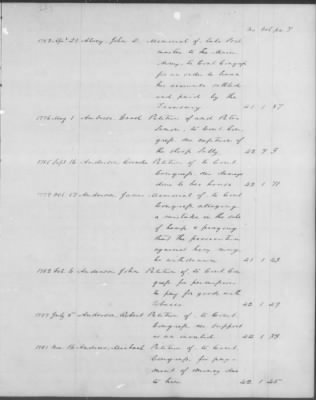 No. Vol. pa.
1783 Apr. 21 John D. Memorial of, late Post
master to the Main
Army, to Cont. Congress
for an order to have
his accounts settled
and paid by the
Treasury 41 1 37
1776 Aug 1 Isaac Petition of and Peter
to Cont. Con-
gress, re capture of
the sloop Sally 42 7 3
1785 Sept. 16 Anderson Petition of to Cont.
Congress, re damage
done to her house 42 1 71
Anderson James Memorial of to Cont.
Congress alleging
a mistake in the sale
of hemp & praying
that the prosecution
against him may
be withdrawn 41 1 23
1782 Feb. 6 Anderson, John Petition of, to Cont. Con-
gress for permission
to pay for goods with
tobacco 42 1 49
July 5 Anderson Robert Petition of, to Cont.
Congress, re support
as an invalid 42 1 59
1781 Nov. Andrews, Michael Petition of, to Cont.
Congress, for pay-
ment of money due
to him 42 1 45